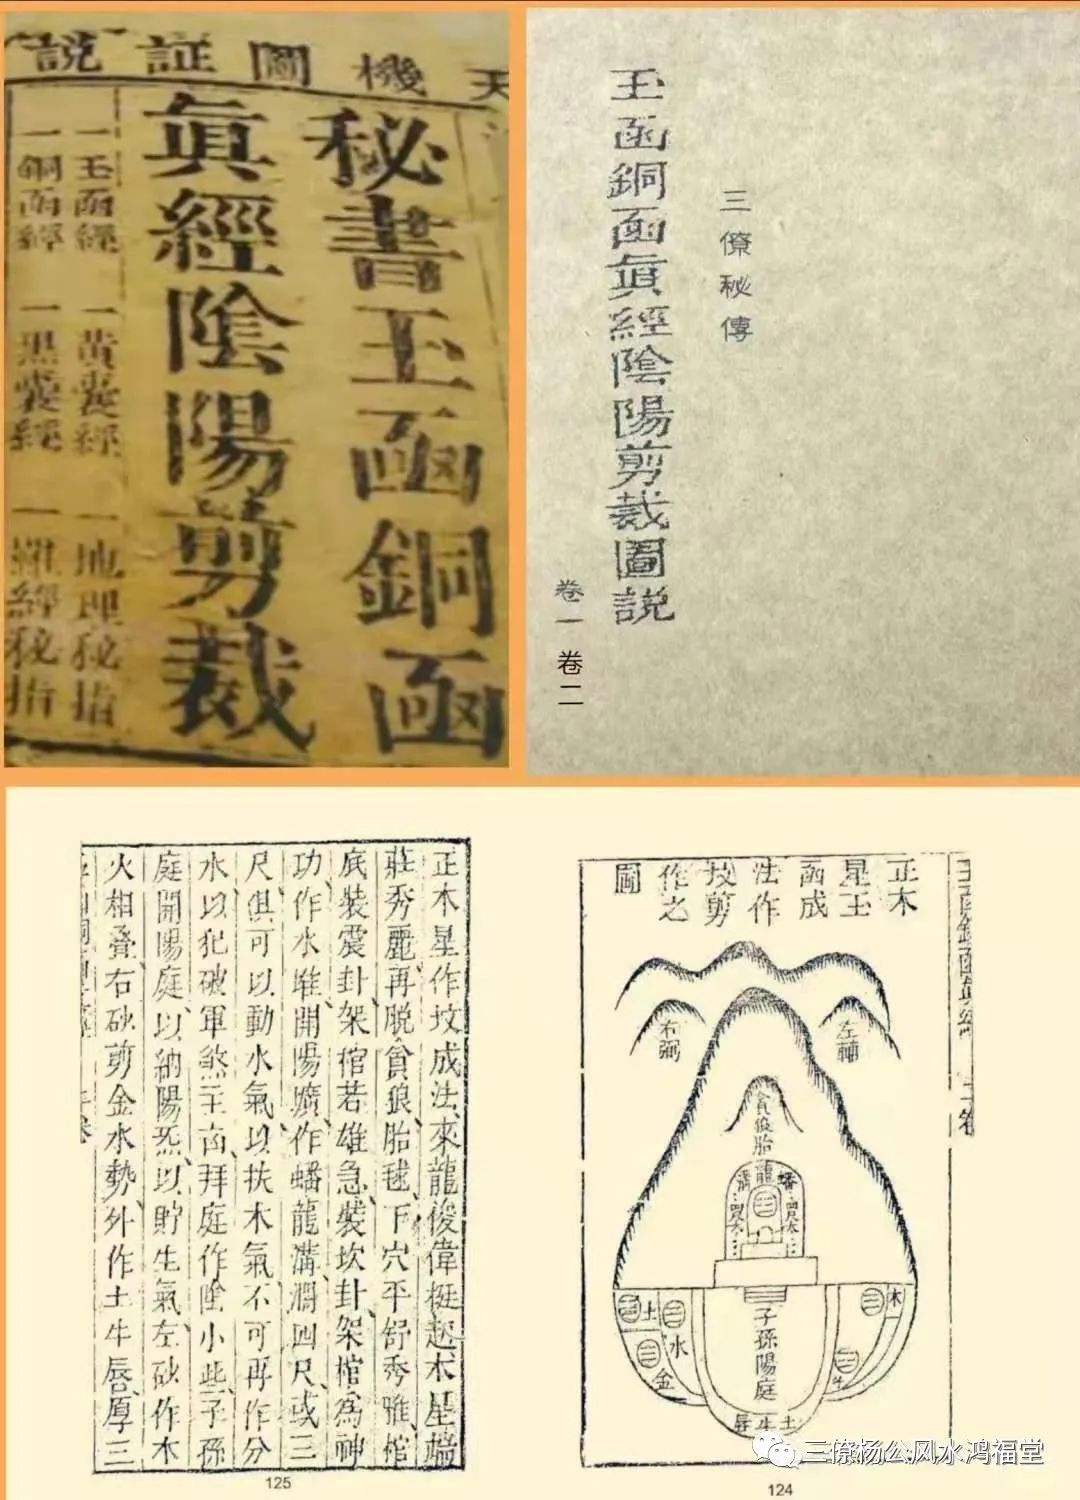 天機圖証説
秘書玉函銅函
眞經陰陽剪裁
一玉函經 一黄囊經 一地理秘指
一銅函經 一黑囊經 一羅經秘指
三僚秘傳
玉函銅函眞經陰陽剪裁圖説
卷一 卷二
正木
星玉
函成
法作
技剪
作之
圖
右弼
左輔
貪狼胎
子孫陽庭
土牛唇
土
水
金
木
124
正木星作坟成法、來龍俊偉挺起、木星端
莊秀麗、再脱貪狼胎毬、下穴平舒秀雅、棺
底裝震卦、架棺若雄急、裝坎卦、架棺爲神
功、作水雖開陽壙、作蟠龍溝濶四尺、或三
尺俱可以動水氣、以扶木氣、不可再作分
水、以犯破軍煞、玉函拜庭作陰小些、子孫
庭開陽庭、以納陽炁、以貯生氣、左砂作木
火相叠、右砂剪金水勢、外作土牛唇、厚三
125
三僚杨公风水鸿福堂